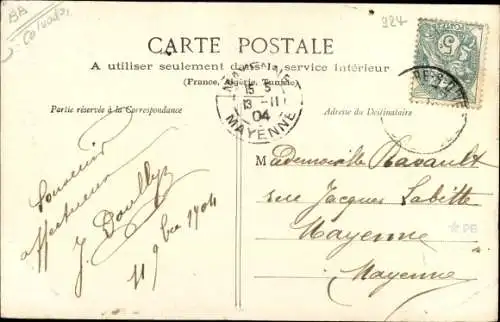 BB
Calvados,
924
CARTE POSTALE
A utiliser seulement dans le service intérieur
(France, Algérie, Tunisie)
Partie réservée à la Correspondance
Adresse du Destinataire
15 5
13 -11
04
MAYENNE
Souvenir
affectueux
J.
11 9bre 1904
Mademoiselle Ravault
rue Jacques Labitte
Mayenne
Mayenne
PB